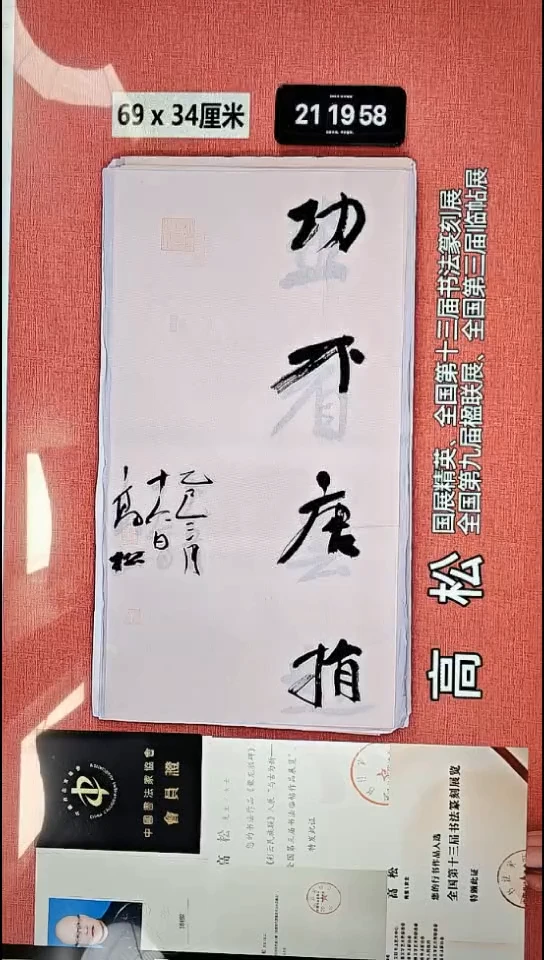 69 x 34厘米
21 19 58
功不唐捐
乙巳三月
十六日
高松
高 松
国展精英、全国第十三届书法篆刻展
全国第九届楹联展、全国第三届临帖展
中國書法家協會
會員證
高 松
特发此证
高 松
您的行书作品入选
全国第十三届书法篆刻展览
特颁此证